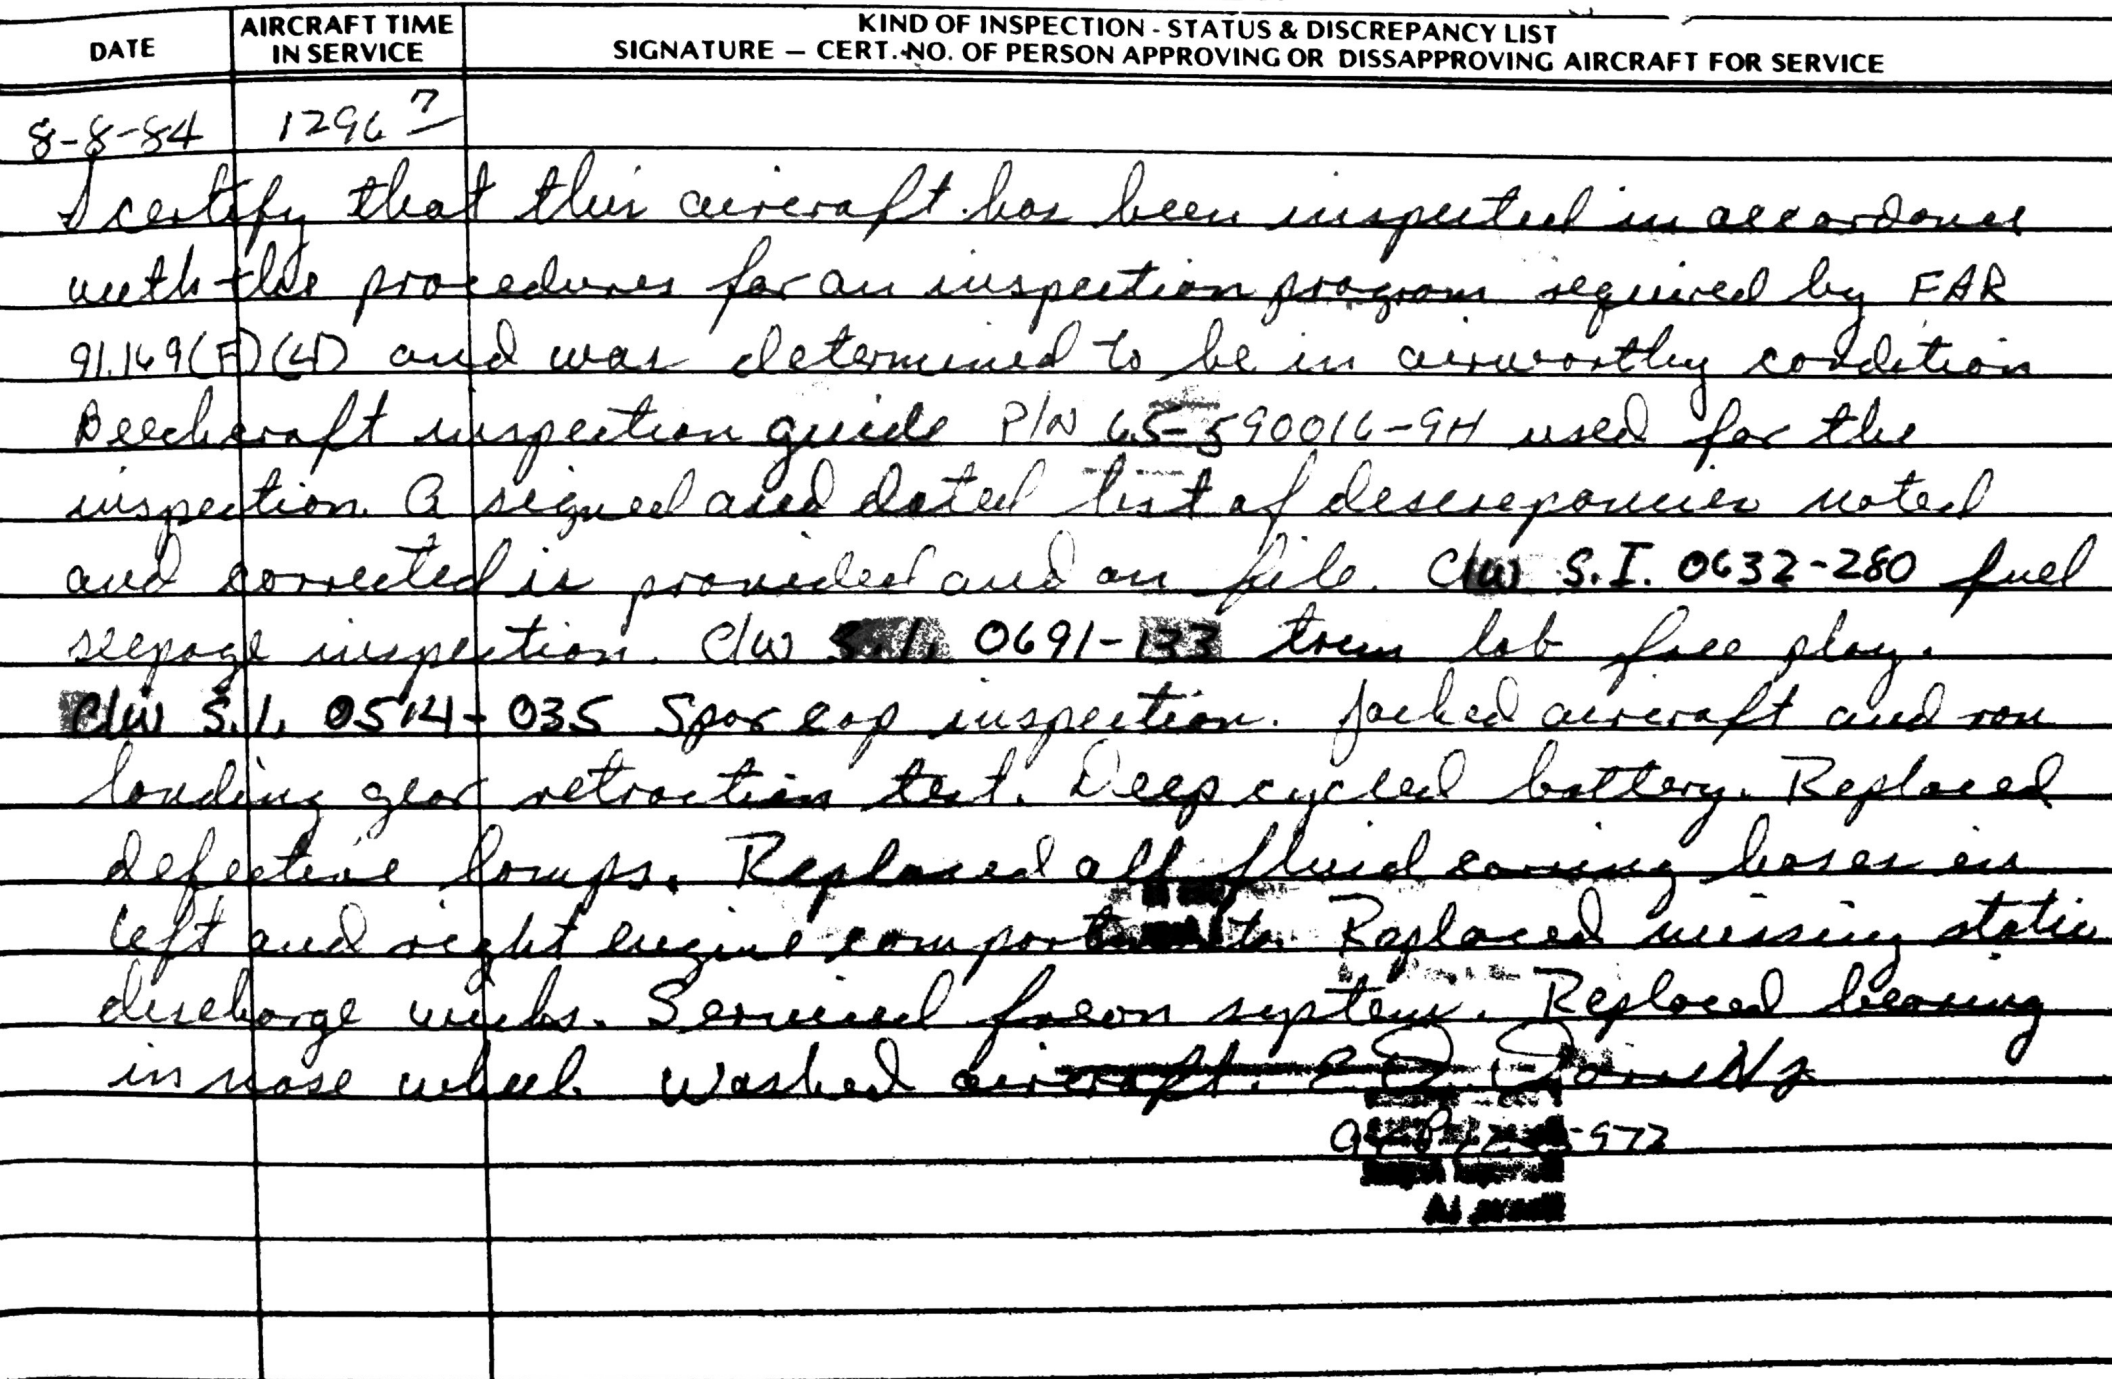 DATE
AIRCRAFT TIME IN SERVICE
KIND OF INSPECTION - STATUS & DISCREPANCY LIST
SIGNATURE — CERT. NO. OF PERSON APPROVING OR DISSAPPROVING AIRCRAFT FOR SERVICE
8-8-84 1296 7
I certify that this aircraft has been inspected in accordance
with the procedures for an inspection program required by FAR
91.169(F)(4) and was determined to be in airworthy condition
Beechcraft inspection guide P/N 65-590016-9H used for the
inspection. A signed and dated list of descrepancies noted
and corrected is provided and on file. C/W S.I. 0632-280 fuel
seepage inspection. C/W S.I. 0691-133 trim tab free play.
C/W S.I. 0514-035 Spar cap inspection. Jacked aircraft and ran
landing gear retraction test. Deep cycled battery. Replaced
defective lamps. Replaced all fluid caring hoses in
left and right engine compartments. Replaced missing static
discharge wicks. Serviced freon system. Replaced bearing
in nose wheel. Washed aircraft.
972